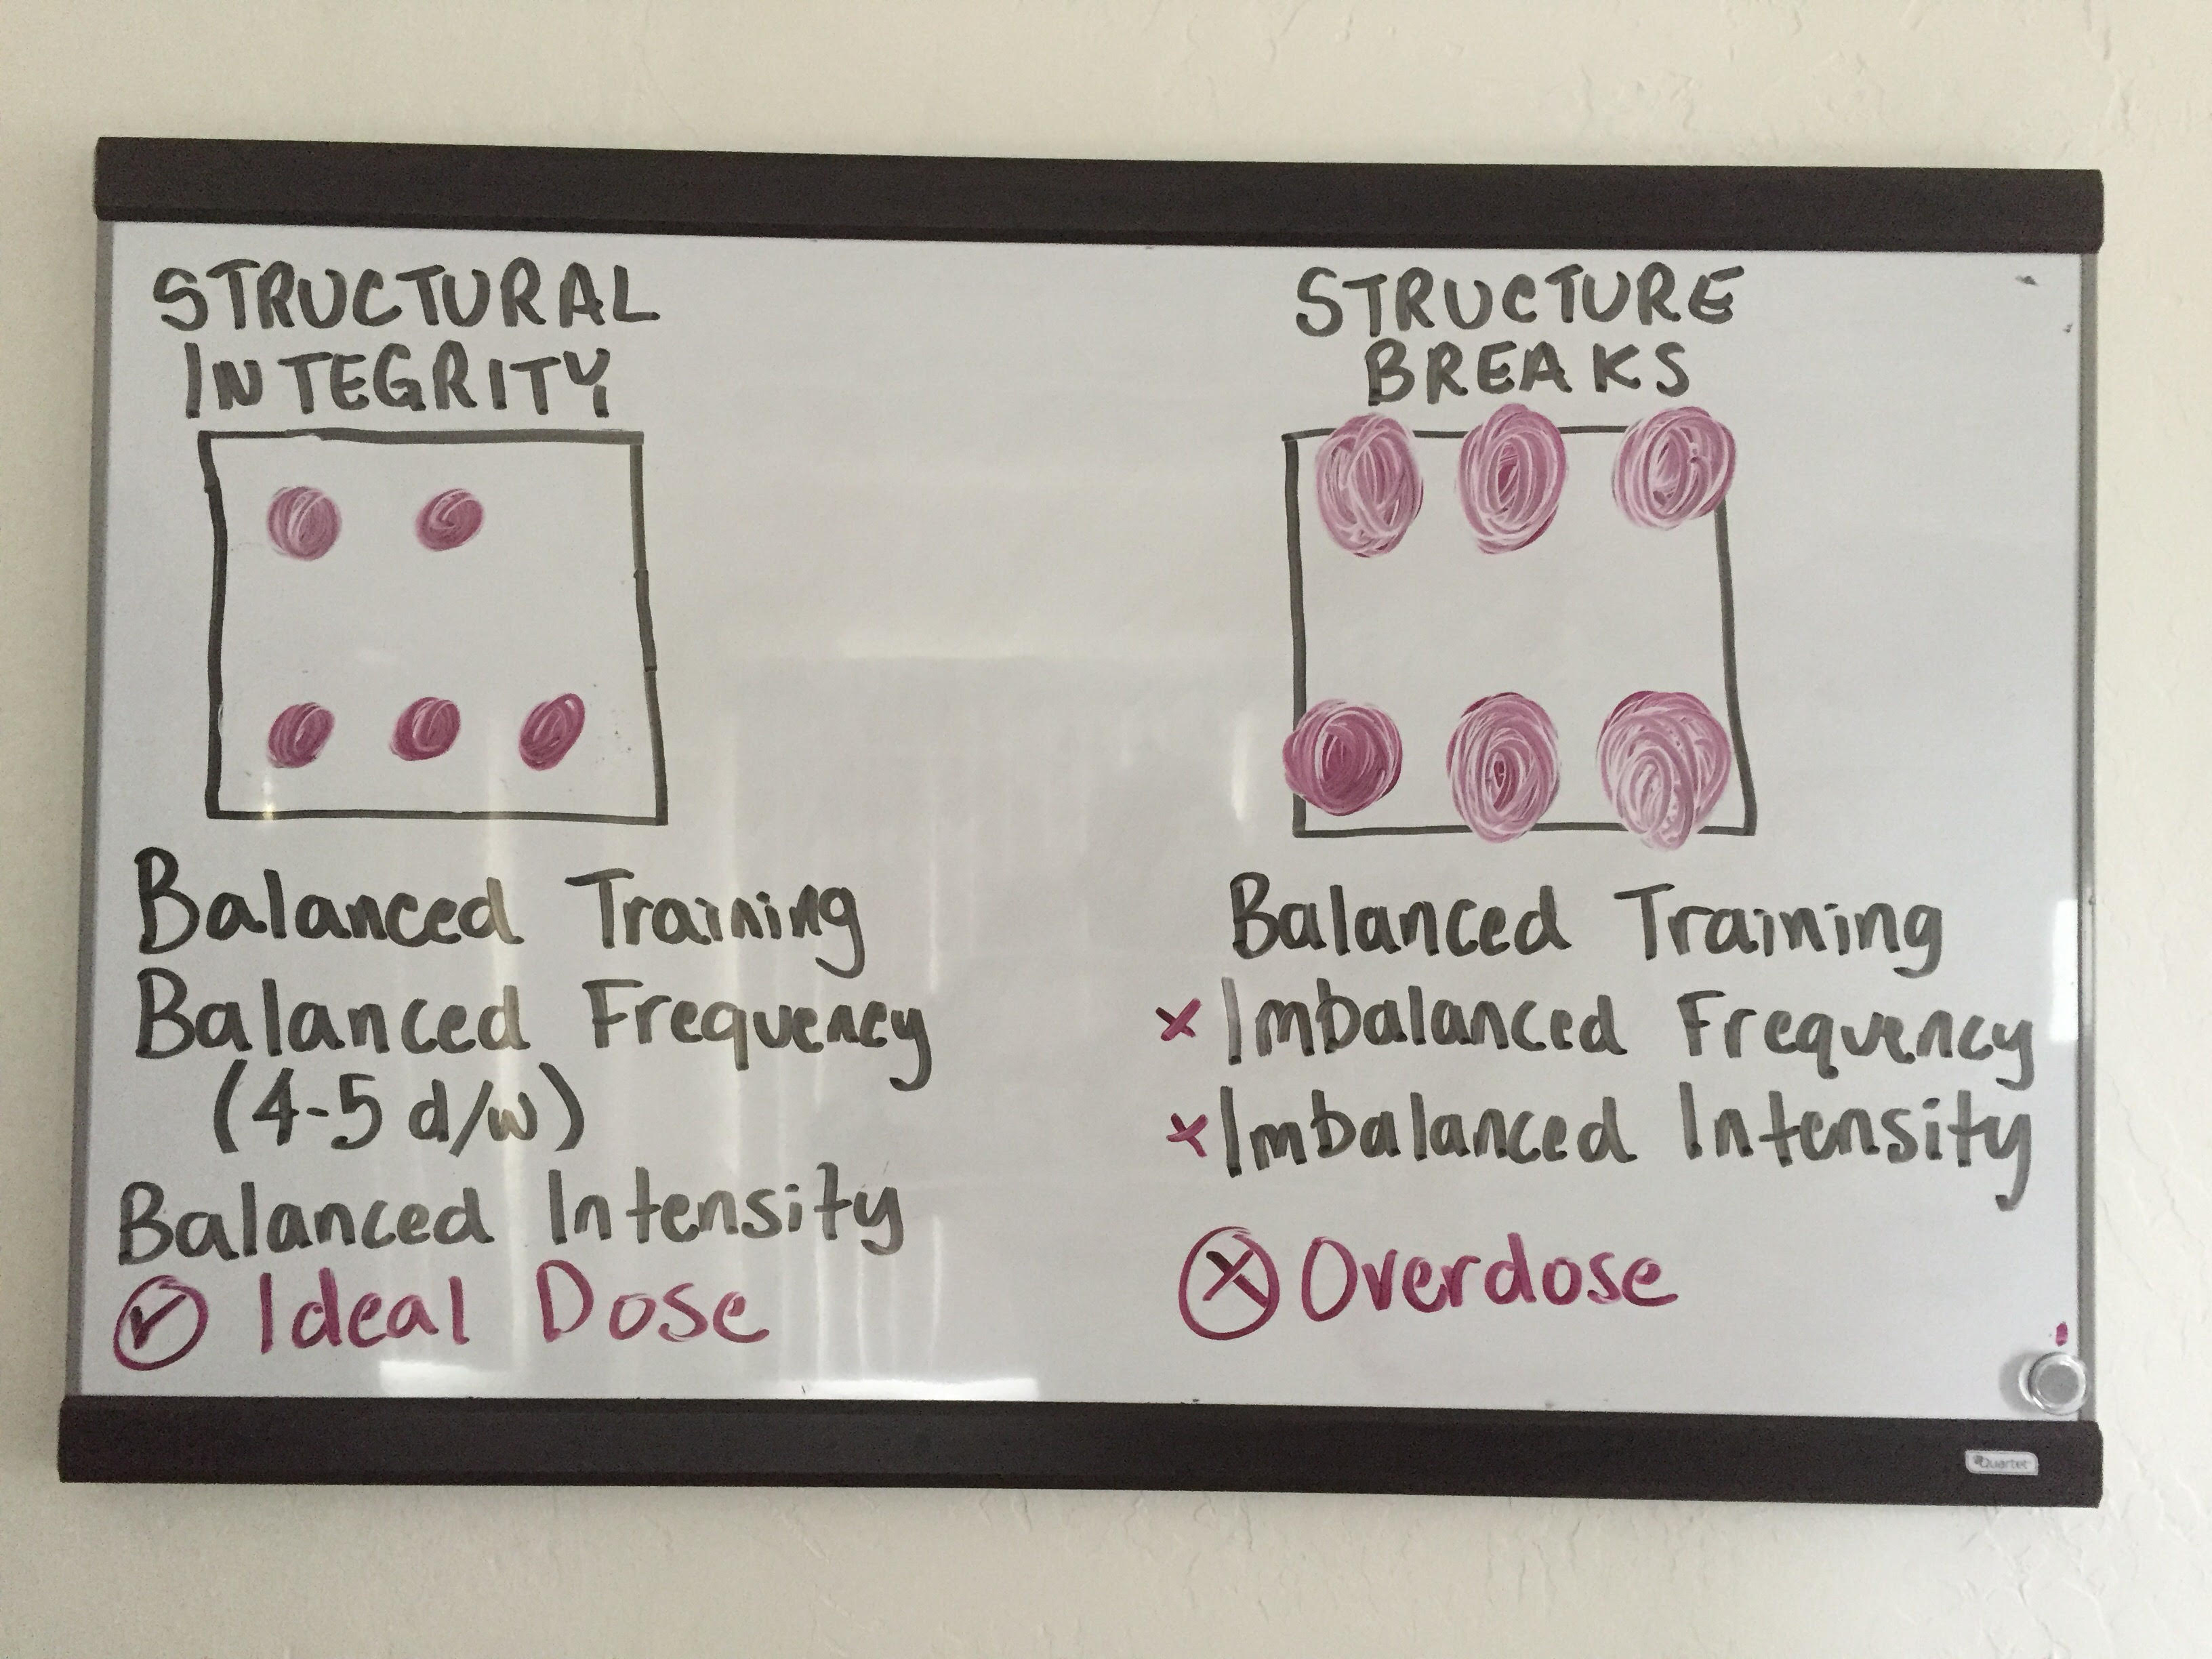 STRUCTURAL
INTEGRITY
Balanced Training
Balanced Frequency
(4-5 d/w)
Balanced Intensity
Ideal Dose
STRUCTURE
BREAKS
Balanced Training
x Imbalanced Frequency
x Imbalanced Intensity
X Overdose
Quartet